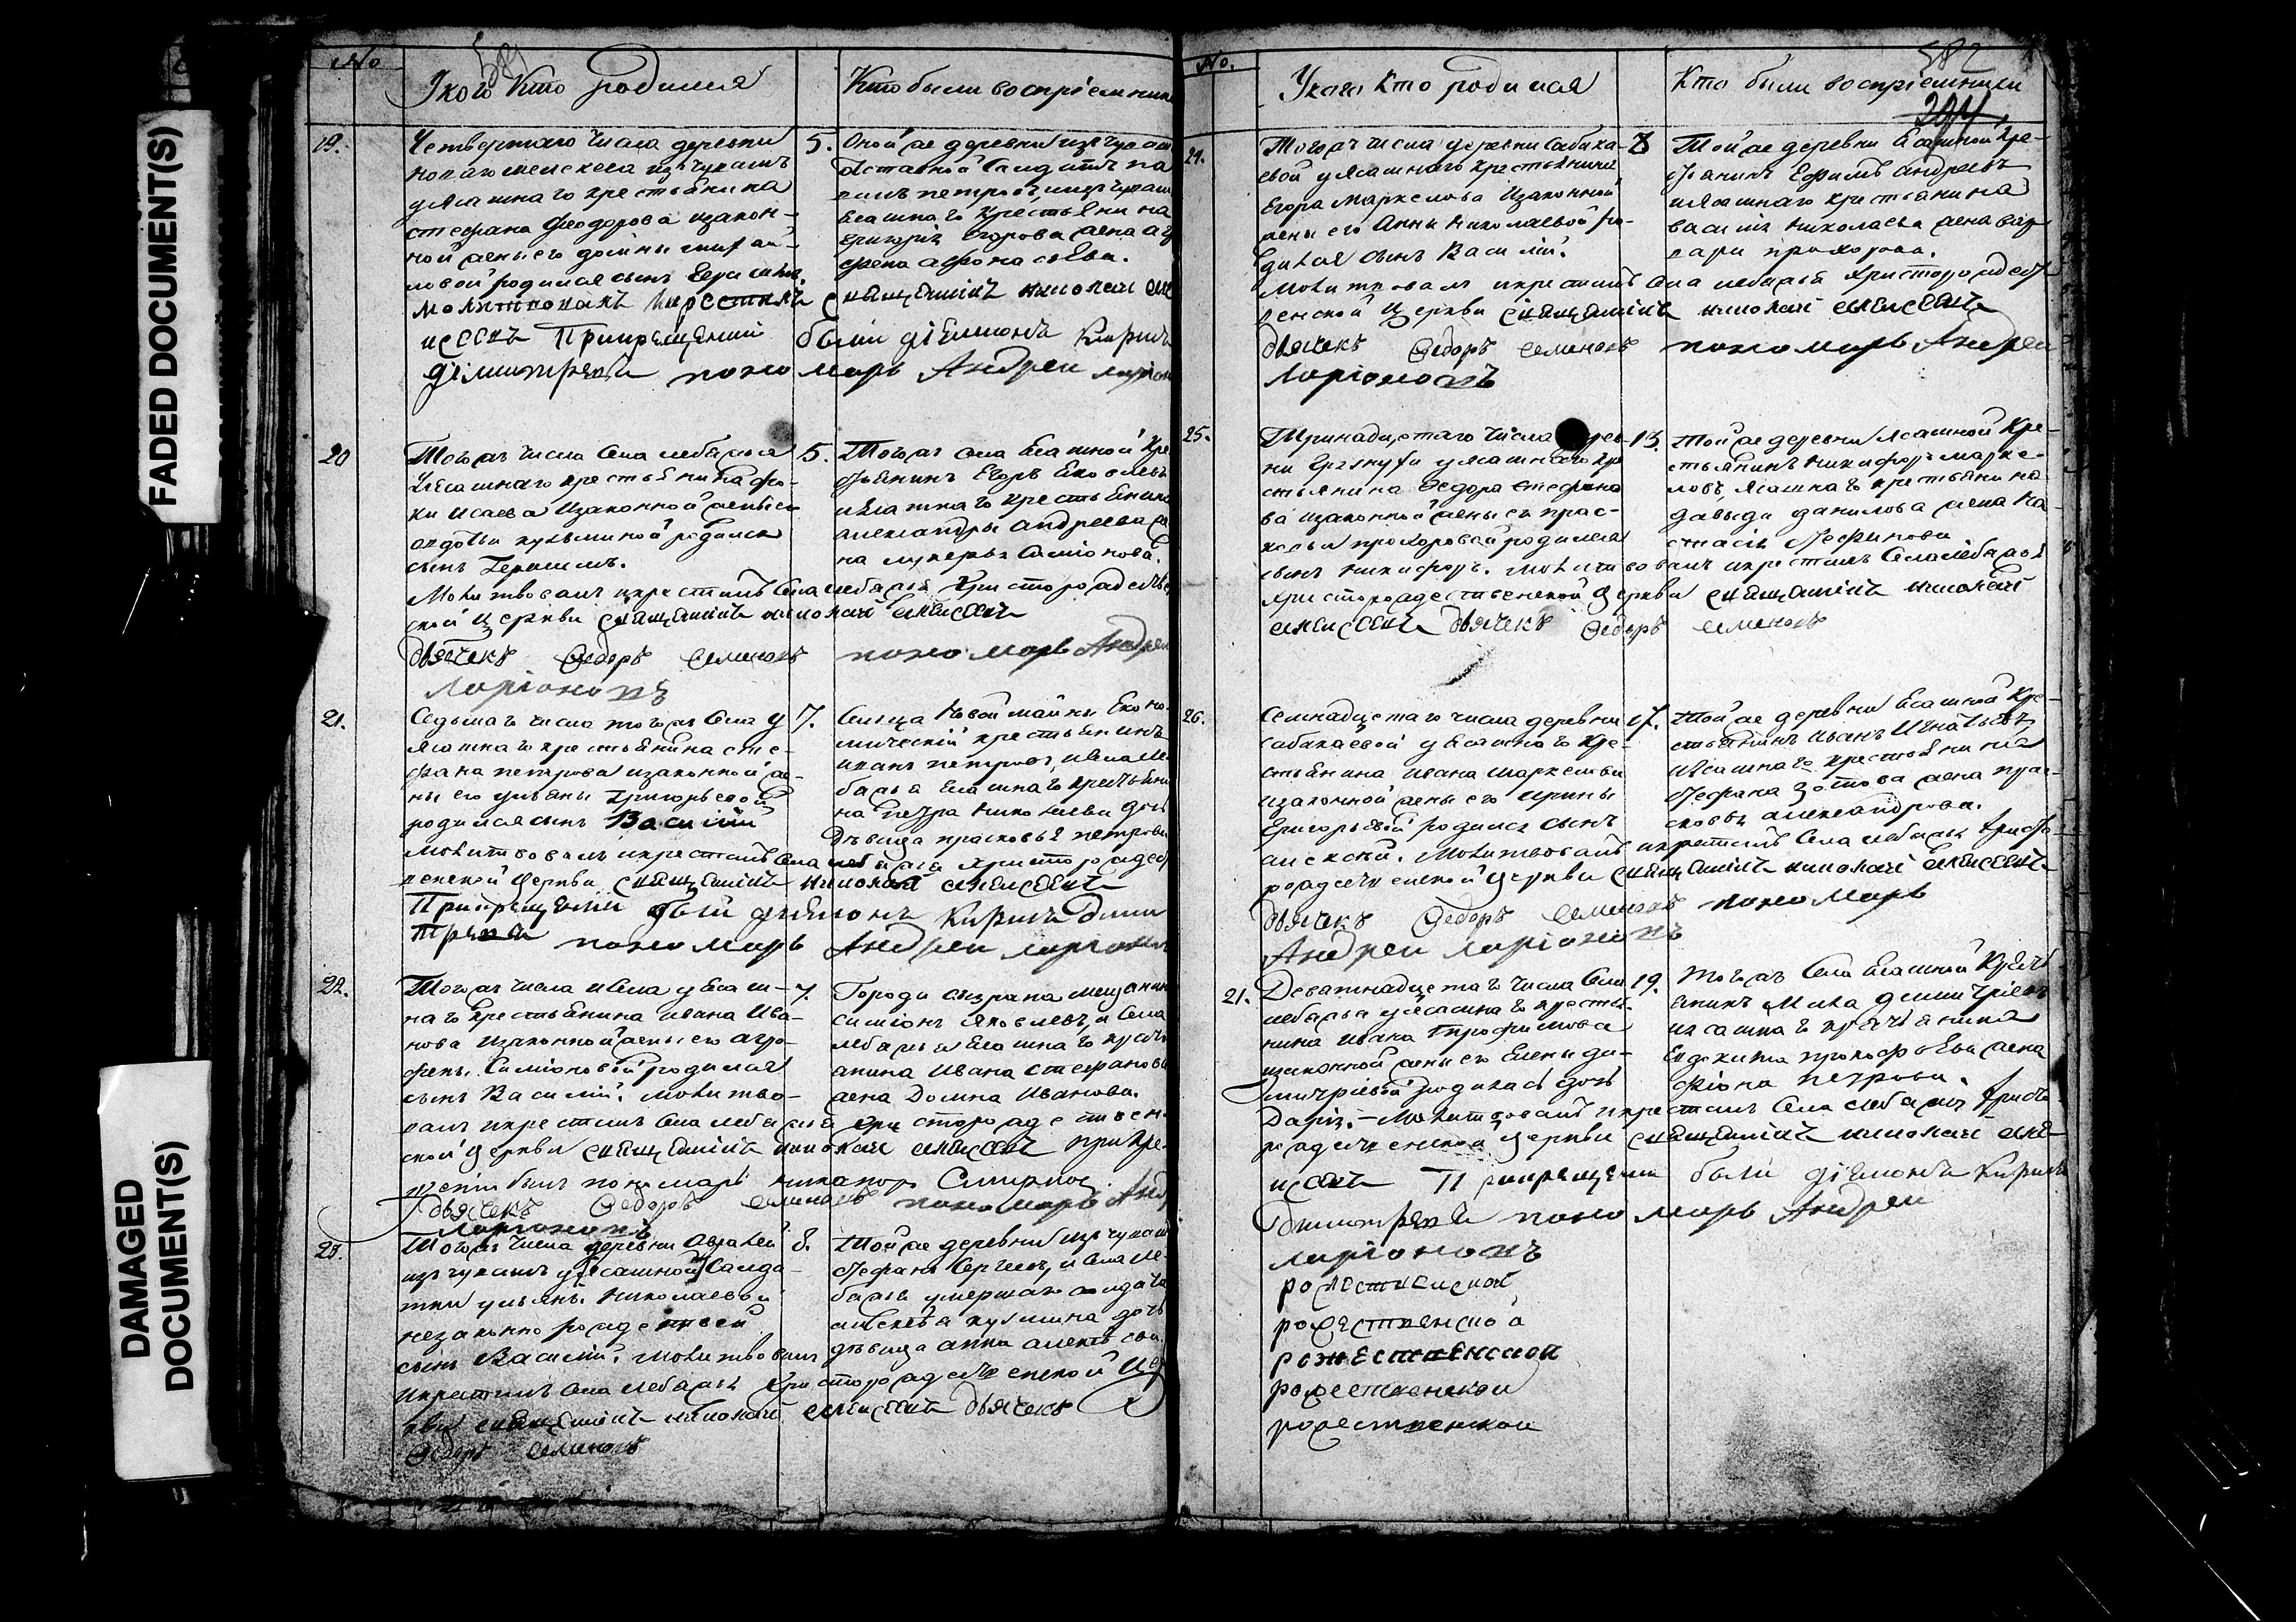 FADED DOCUMENT(S)
DAMAGED
DOCUMENT(S)
№
У кого кто родился
Кто были воспріемник
19.
Четвертаго числа деревни
изъ чувашъ
уясашнаго крестьянина
стефана феодорова изакон-
ной жены его домны
ловой родился сынъ
молитвовалъ икрестилъ священникъ николай еле
исеевъ При крещении были діяконъ Кирилъ
дімитреевъ пономарь Андреи ларіон
5.
Оной же деревни изъ чуваш
отставной салдатъ
петровъ, изъ чуваш
ясашнаго крестьянина
григорія егорова жена
афонасьева.
20
Тогожъ числа села лебяжья
уясашнаго крестьянина фо-
ки исаева изаконной жены ег
авдотьи кузьминой родился
сынъ Герасимъ.
Молитвовалъ икрестилъ села лебяжья Христорождеств
ской церкви священникъ николай елисеевъ
дьячекъ Федоръ семеновъ пономарь Андреи
ларіоновъ
5.
Тогожъ села ясашной кре
стьянинъ Егоръ Яковлевъ
иясашнаго крестьянина
александры андреева же
на лукерья Симіонова.
21.
Седьмаго числа тогожъ села у
ясашнаго крестьянина сте-
фана петрова изаконной же-
ны его ульяны григорьевой
родился сынъ Василій
молитвовалъ икрестилъ села лебяжья христорождест
венской церкви священникъ николай елисеевъ
При крещении был діяконъ Кирилъ Дими
треевъ пономарь Андреи ларіонов
7.
Сельца Новой майны Еконо-
мической крестьянинъ
иванъ петровъ, исела ле
бяжья ясашнаго крестьяни
на петра николаева дочь
девица прасковья петрова
22.
Тогожъ числа исела уясаш-
наго крестьянина ивана ива-
нова изаконной жены его агро-
фены Симіоновой родился
сынъ Василій. молитво-
валъ икрестилъ села лебяжья христорождествен
ской церкви священникъ николай елисеевъ при кре
щеніи былъ пономарь никаноръ Смирнов
дьячекъ Федоръ семеновъ пономарь Анд
ларіоновъ
7.
Города сызрана мещанин
симіонъ яковлевъ, и села
лебяжья ясашнаго кресть
янина ивана стефанова
жена Домна иванова.
23.
Тогожъ числа деревни
изъ чувашъ уясашной салда-
тки ульяны николаевой
незаконно рожденной
сынъ Василій. молитвовалъ
икрестилъ села лебяжья христорождественской цер
кви священникъ николай елисеевъ дьячекъ
Федоръ семеновъ
8.
Той же деревни изъ чуваш
стефанъ Сергеевъ, и села ле-
бяжья умершаго солдата
алексея кузмина дочь
девица анна алексеева.
№.
У кого кто родился
Кто были воспріемники
582
294
24.
Тогожъ числа деревни Сабака-
евой уясашнаго крестьянина
Егора Маркелова изаконной
жены его Анны николаевой ро-
дился сынъ Василій.
молитвовалъ икрестилъ села лебяжья христорождест
венской церкви священникъ николай елисеевъ
дьячекъ Федоръ семеновъ пономарь Андреи
ларіоновъ
8
Той же деревни ясашной кре-
стьянинъ Ефимъ андреевъ
иясашнаго крестьянина
василія николаева жена вар
вара прохорова.
25.
Тринадцетаго числа дерев-
ни уясашнаго кре
стьянина Федора стефано
ва изаконной жены его прас-
ковьи прохоровой родился
сынъ никифоръ. молитвовалъ икрестилъ села лебяжья
христорождественской церкви священникъ николай
елисеевъ дьячекъ Федоръ семеновъ
13.
Той же деревни ясашной кре-
стьянинъ никифоръ марке-
ловъ, ясашнаго крестьянина
давыда данилова жена на-
стасія стефанова
26.
Семнадцетаго числа деревни
сабакаевой уясашнаго кре-
стьянина ивана маркелова
изаконной жены его ирины
григорьевой родился сынъ
алексей. молитвовалъ икрестилъ села лебяжья христо
рождественской церкви священникъ николай елисеевъ
дьячекъ Федоръ семеновъ пономарь
Андреи ларіоновъ
17.
Той же деревни ясашной кре-
стьянинъ иванъ игнатьевъ,
иясашнаго крестьянина
стефана зотова жена прас-
ковья александрова.
21.
Девятнадцетаго числа села
лебяжья уясашнаго кресть-
янина ивана трофимова
изаконной жены его Елены ди-
митріевой родилась дочь
Дарія. - молитвовалъ икрестилъ села лебяжья христо
рождественской церкви священникъ николай еле-
исеевъ При крещении были діяконъ Кирилъ
димитреевъ пономарь Андреи
ларіоновъ
19.
Тогожъ села ясашной кресть
янинъ Мика димитріевъ
иясашнаго крестьянина
Евдокима прокофьева жена
фіона петрова.
рожественской
рожественской
рожественской
рожественской
рожественской